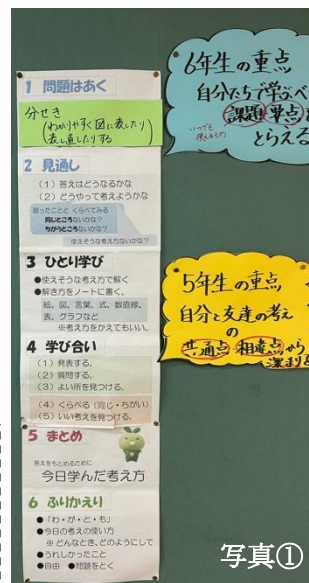 1 問題はあく
分せき
(わかりやすく図に表したり
表し直したりする)
2 見通し
(1)答えはどうなるかな
(2)どうやって考えようかな
習ったことと くらべてみる
同じところないかな?
ちがうところないかな?
使えそうな考え方ないかな?
3 ひとり学び
●使えそうな考え方で解く
●解き方をノートに書く。
絵、図、言葉、式、数直線、
表、グラフなど
※考え方をかえてもいい。
4 学び合い
(1)発表する。
(2)質問する。
(3)よい所を見つける。
(4)くらべる(同じ・ちがい)
(5)いい考えを見つける。
5 まとめ
答えをもとめるために
今日学んだ考え方
6 ふりかえり
●「わ・が・と・も」
●今日の考えの使い方
※どんなとき、どのようにして
●うれしかったこと
●自由 ●問題をとく
6年生の重点
自分たちで学ぶべ
課題 要点
いつでも
使えるもの
とらえる
5年生の重点
自分と友達の考え
の
共通点 相違点から
深まり
写真①